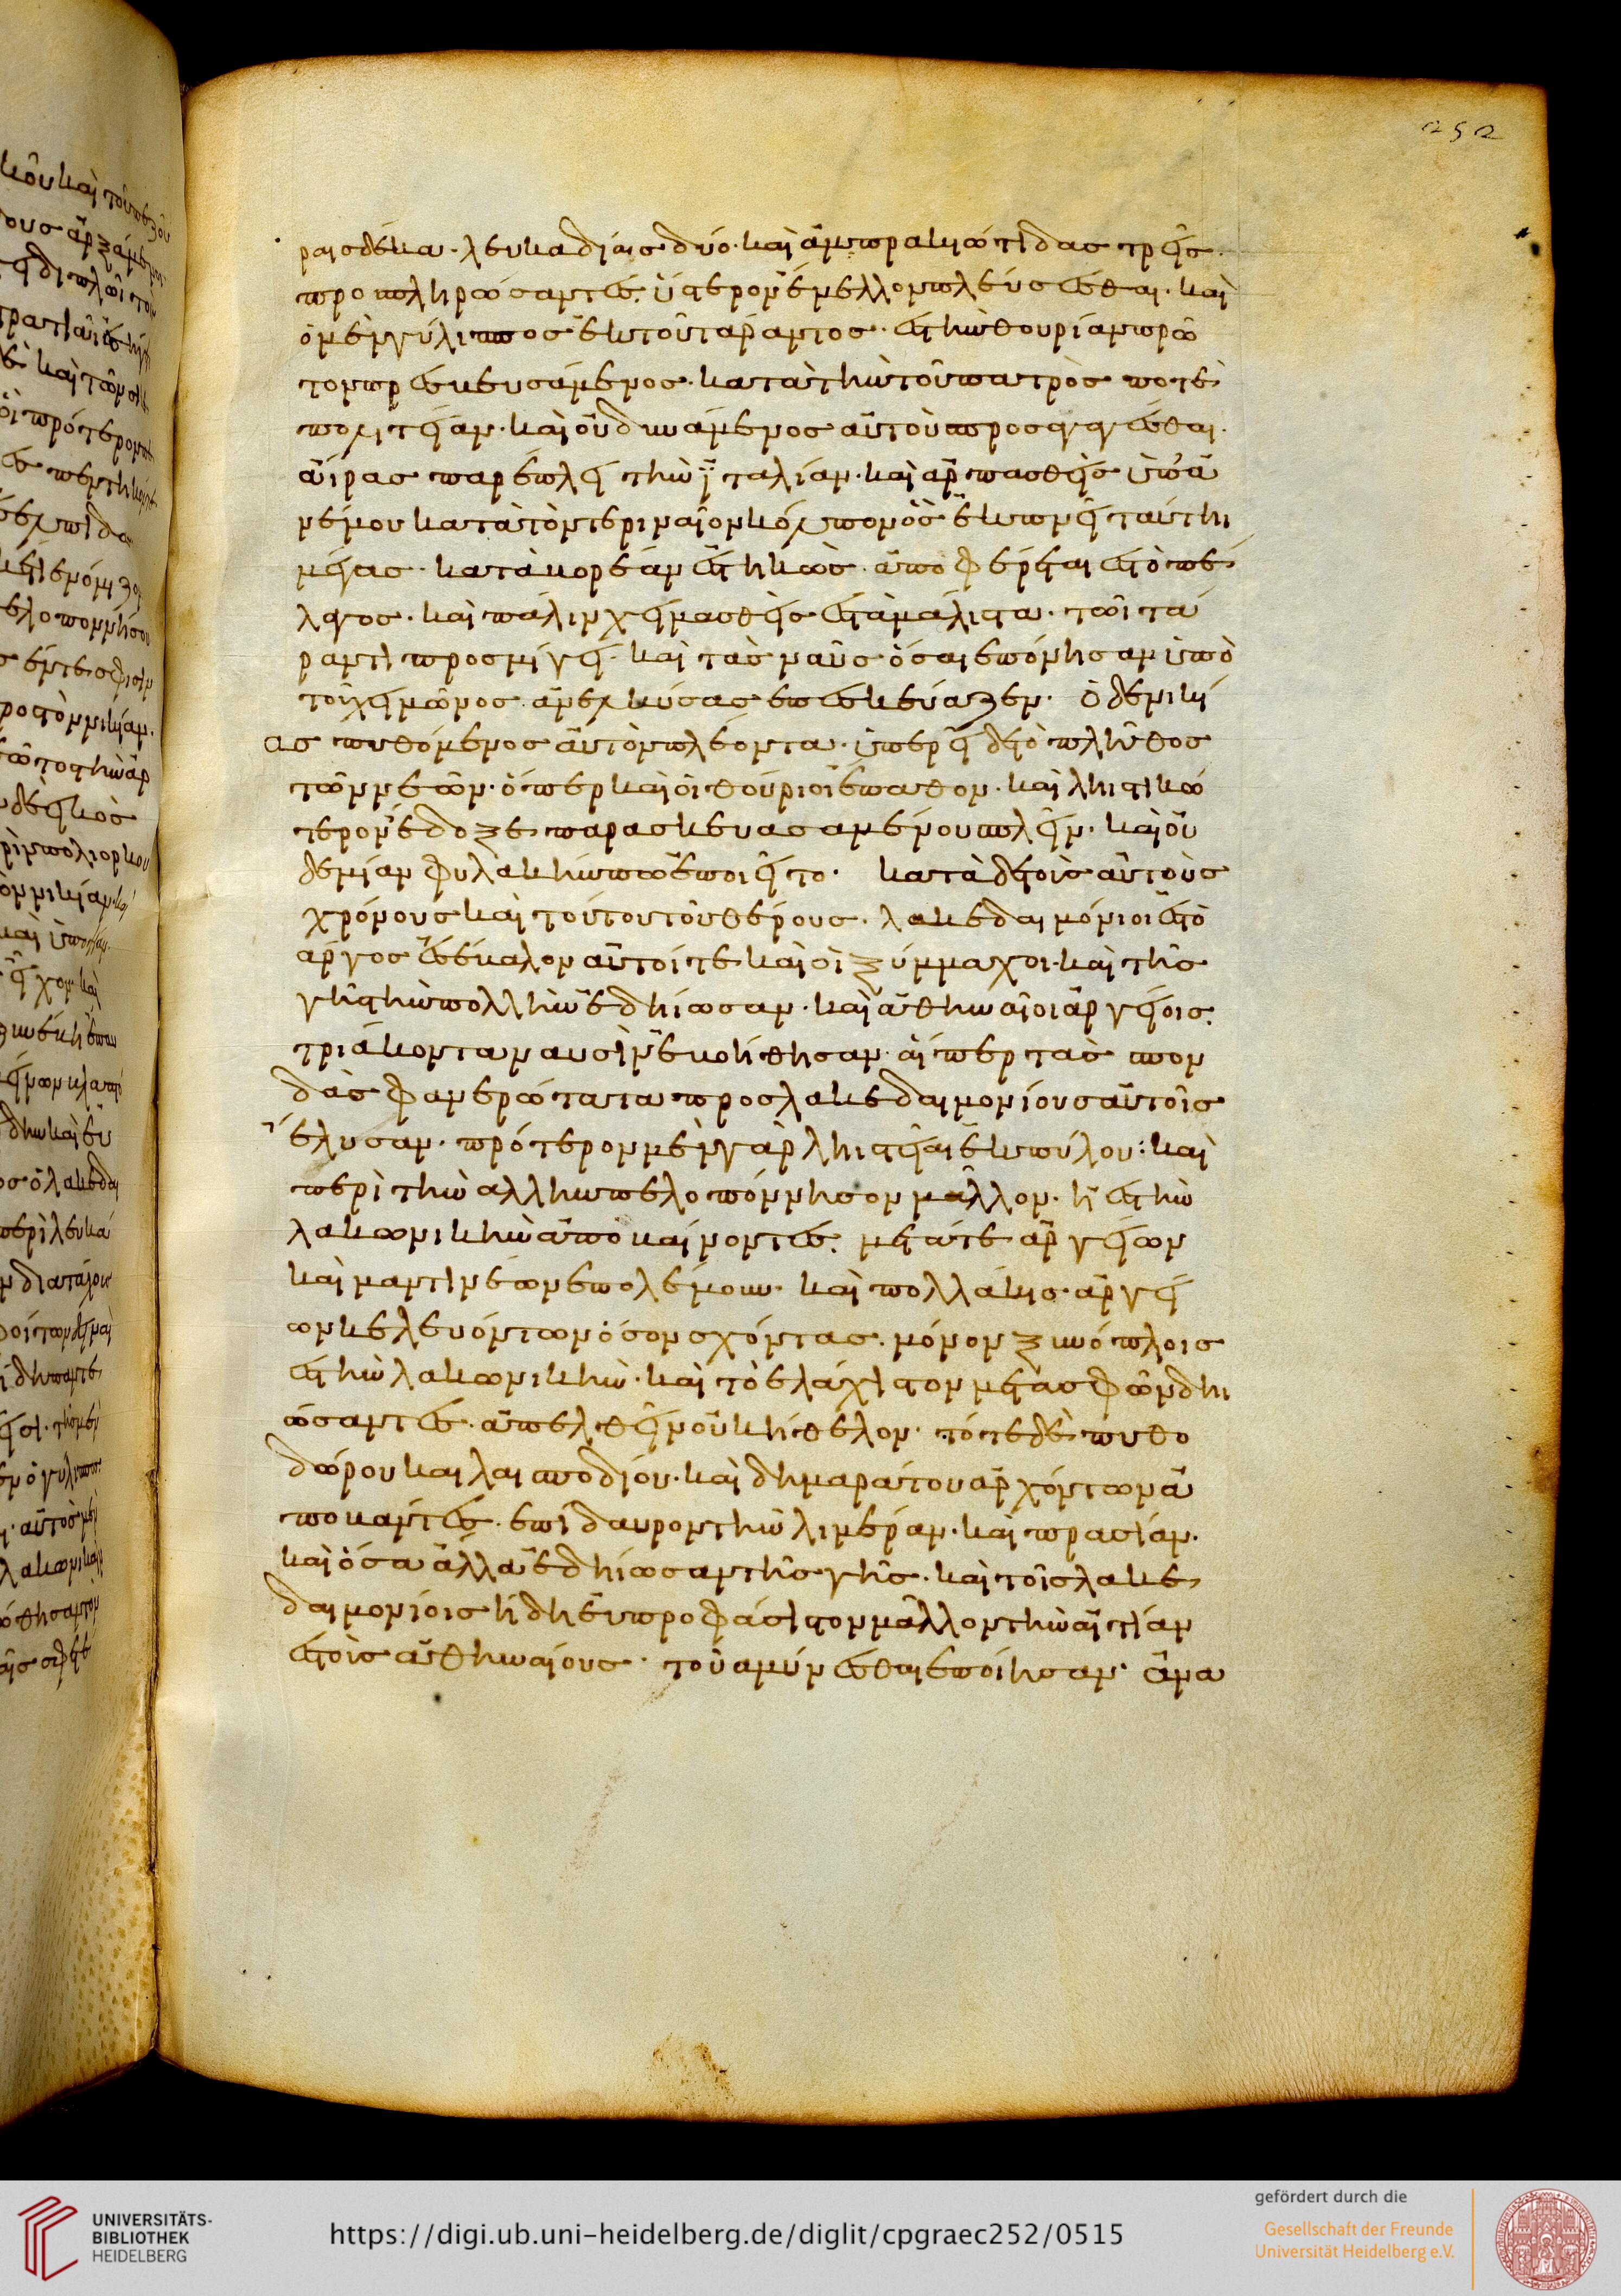 252
ραισ δέκα· λευκαδίαισ δύο· καὶ ἀμπρακιώτιδασ τρεῖσ·
προπληρώσαντεσ. ὕστερον ἔμελλον πλεύσεσθαι· καὶ
ὁ μὲν γύλιπποσ ἐκ τοῦ τάραντοσ· ἐσ τὴν θουρίαν πρῶ
τον πρεσβευσάμενοσ· κατὰ τὴν τοῦ πατρὸσ ποτὲ
πολιτείαν· καὶ οὐ δυνάμενοσ αὐτοὺσ προσαγαγέσθαι·
ἄρασ παρέπλει τὴν ἰταλίαν· καὶ ἁρπασθεὶσ ὑπ' ἀ
νέμου κατὰ τὸν τεριναῖον κόλπον ὃσ ἐκπνεῖ ταύτηι
μέγασ· κατὰ βορέαν ἑστηκὼσ· ἀποφέρεται ἐσ τὸ πέ
λαγοσ· καὶ πάλιν χειμασθεὶσ ἐσ τὰ μάλιστα· τῶι τά
ραντι προσμίσγει· καὶ τὰσ ναῦσ ὅσαι ἐπόνησαν ὑπὸ
τοῦ χειμῶνοσ ἀνελκύσασ ἐπεσκεύαζεν· ὁ δὲ νικί
ασ πυθόμενοσ αὐτὸν πλέοντα· ὑπερεῖδε τὸ πλῆθοσ
τῶν νεῶν· ὅπερ καὶ οἱ θούριοι ἔπαθον· καὶ ληιστικώ
τερον ἔδοξε παρασκευασαμένου πλεῖν· καὶ οὐ
δεμίαν φυλακήν πω ἐποιεῖτο· κατὰ δὲ τοὺσ αὐτοὺσ
χρόνουσ καὶ τούτου τοῦ θέρουσ· λακεδαιμόνιοι ἐσ τὸ
ἄργοσ ἐσέβαλον αὐτοί τε καὶ οἱ ξύμμαχοι· καὶ τῆσ
γῆσ τὴν πολλὴν ἐδήιωσαν· καὶ ἀθηναῖοι ἀργείοισ.
τριάκοντα ναυσὶν ἐβοήθησαν· αἵπερ τὰσ σπον
δὰσ φανερώτατα προσ λακεδαιμονίουσ αὐτοῖσ
ἔλυσαν· πρότερον μὲν γὰρ ληιστείαισ ἐκ πύλου: καὶ
περὶ τὴν ἄλλην πελοπόννησον μᾶλλον· ἢ ἐσ τὴν
λακωνικὴν ἀποβαίνοντεσ. μετά τε ἀργείων
καὶ μαντινέων ἐπολέμουν· καὶ πολλάκισ ἀργεί
ων κελευόντων ὅσον σχόντασ. μόνον ξὺν ὅπλοισ
ἐσ τὴν λακωνικὴν· καὶ τὸ ἐλάχιστον μετὰ σφῶν δηι
ώσαντεσ· ἀπελθεῖν οὐκ ἤθελον· τότε δὲ πυθο
δώρου και λαισποδίου· καὶ δημαράτου ἀρχόντων ἀ
ποβάντεσ· ἐπίδαυρον τὴν λιμεράν· καὶ πρασίαν·
καὶ ὅσα ἄλλα ἐδήιωσαν τῆσ γῆσ· καὶ τοῖσ λακε
δαιμονίοισ ἤδη εὐπροφάσιστον μᾶλλον τὴν αἰτίαν
ἐσ τοὺσ ἀθηναίουσ· τοῦ ἀμύνεσθαι ἐποίησαν· ἅμα
UNIVERSITÄTS-
BIBLIOTHEK
HEIDELBERG
https://digi.ub.uni-heidelberg.de/diglit/cpgraec252/0515
gefördert durch die
Gesellschaft der Freunde
Universität Heidelberg e.V.